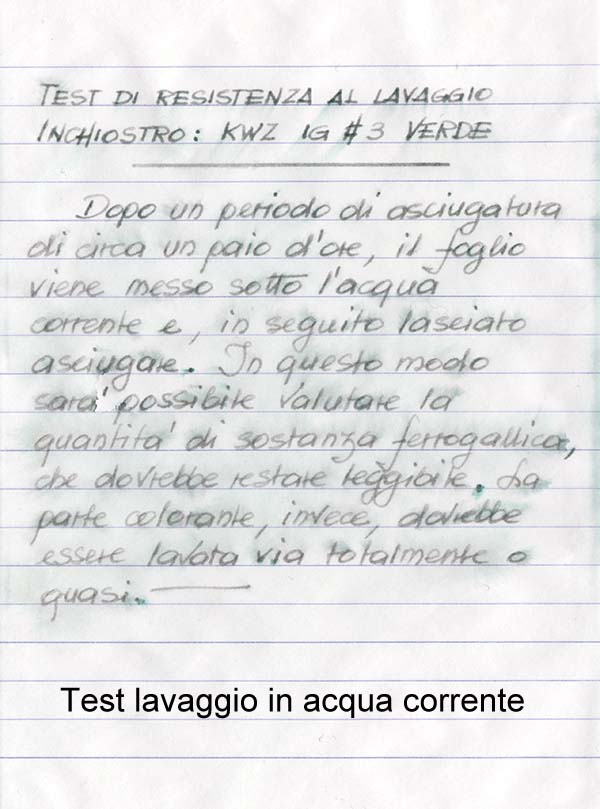 TEST DI RESISTENZA AL LAVAGGIO
INCHIOSTRO: KWZ IG #3 VERDE
Dopo un periodo di asciugatura
di circa un paio d'ore, il foglio
viene messo sotto l'acqua
corrente e, in seguito lasciato
asciugare. In questo modo
sara' possibile valutare la
quantita' di sostanza ferrogallica,
che dovrebbe restare leggibile. La
parte colorante, invece, dovrebbe
essere lavata via totalmente o
quasi.
Test lavaggio in acqua corrente